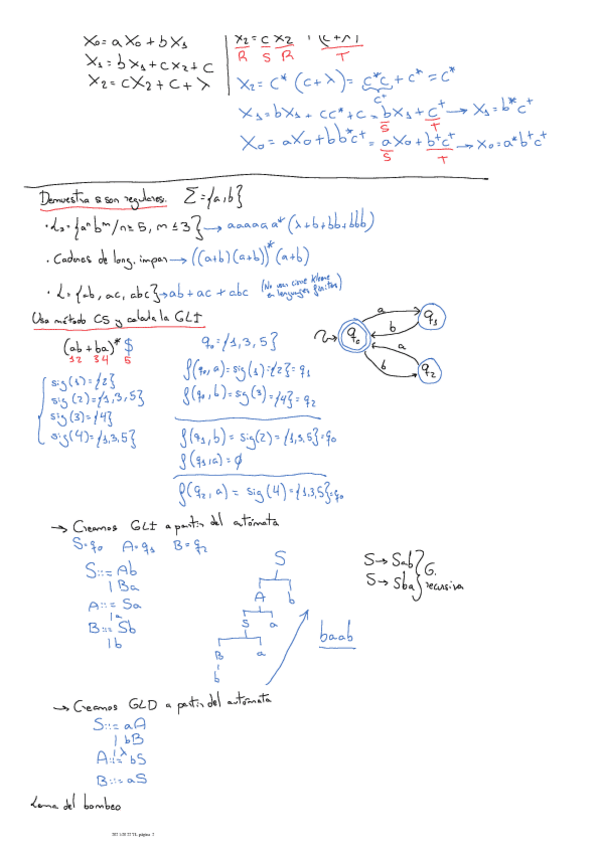 X₀ = aX₀ + bX₁
X₁ = bX₁ + cX₂ + c
X₂ = cX₂ + c + λ
X₂ = c X₂ + (c+λ)
R S R T
X₂ = c* (c+λ) = c*c + c* = c*
c⁺
X₁ = bX₁ + cc* + c = bX₁ + c⁺ → X₁ = b*c⁺
S T
X₀ = aX₀ + bb*c⁺ = aX₀ + b⁺c⁺ → X₀ = a*b⁺c⁺
S T
Demuestra si son regulares. Σ = {a,b}
· L = {aⁿbᵐ / n ≥ 5, m ≤ 3} → aaaaa a* (λ+b+bb+bbb)
· Cadenas de long. impar → ((a+b)(a+b))* (a+b)
· L = {ab, ac, abc} → ab + ac + abc (No usa cierre Kleene en lenguajes finitos)
Usa método CS y calcula la GLI
(ab + ba)* $
12 34 5
sig(1) = {2}
sig(2) = {1,3,5}
sig(3) = {4}
sig(4) = {1,3,5}
q₀ = {1,3,5}
f(q₀,a) = sig(1) = {2} = q₁
f(q₀,b) = sig(3) = {4} = q₂
f(q₁,b) = sig(2) = {1,3,5} = q₀
f(q₁,a) = ∅
f(q₂,a) = sig(4) = {1,3,5} = q₀
q₀
a
q₁
b
a
b
q₂
→ Creamos GLI a partir del autómata
S = q₀ A = q₁ B = q₂
S ::= Ab
| Ba
A ::= Sa
| a
B ::= Sb
| b
S
A b
S a
B a
b
baab
S → Sab
S → Sba
G. recursiva
→ Creamos GLD a partir del autómata
S ::= aA
| bB
| λ
A ::= bS
B ::= aS
Lema del bombeo